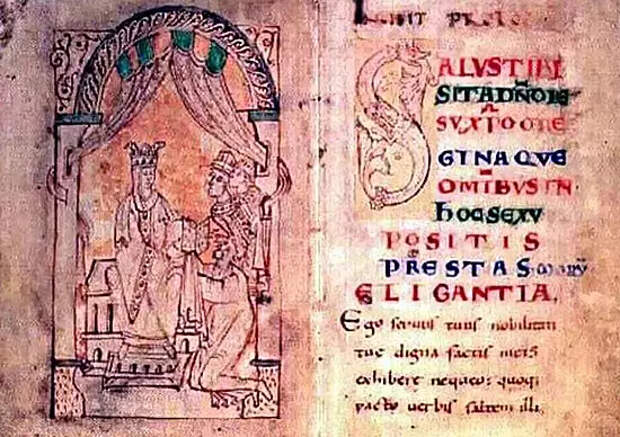 INCIPIT PROLO
SALVS TIBI
SIT A DÑO IE
SV XPO O RE
GINA QVE
OMIBVS IN
hOC SEXV
POSITIS
PRESTAS MORV
ELIGANTIA.
Ego seruus tuus nobilitati
tue digna factis meis
exhibere nequeo; quoq
pacto uerbis saltem illi